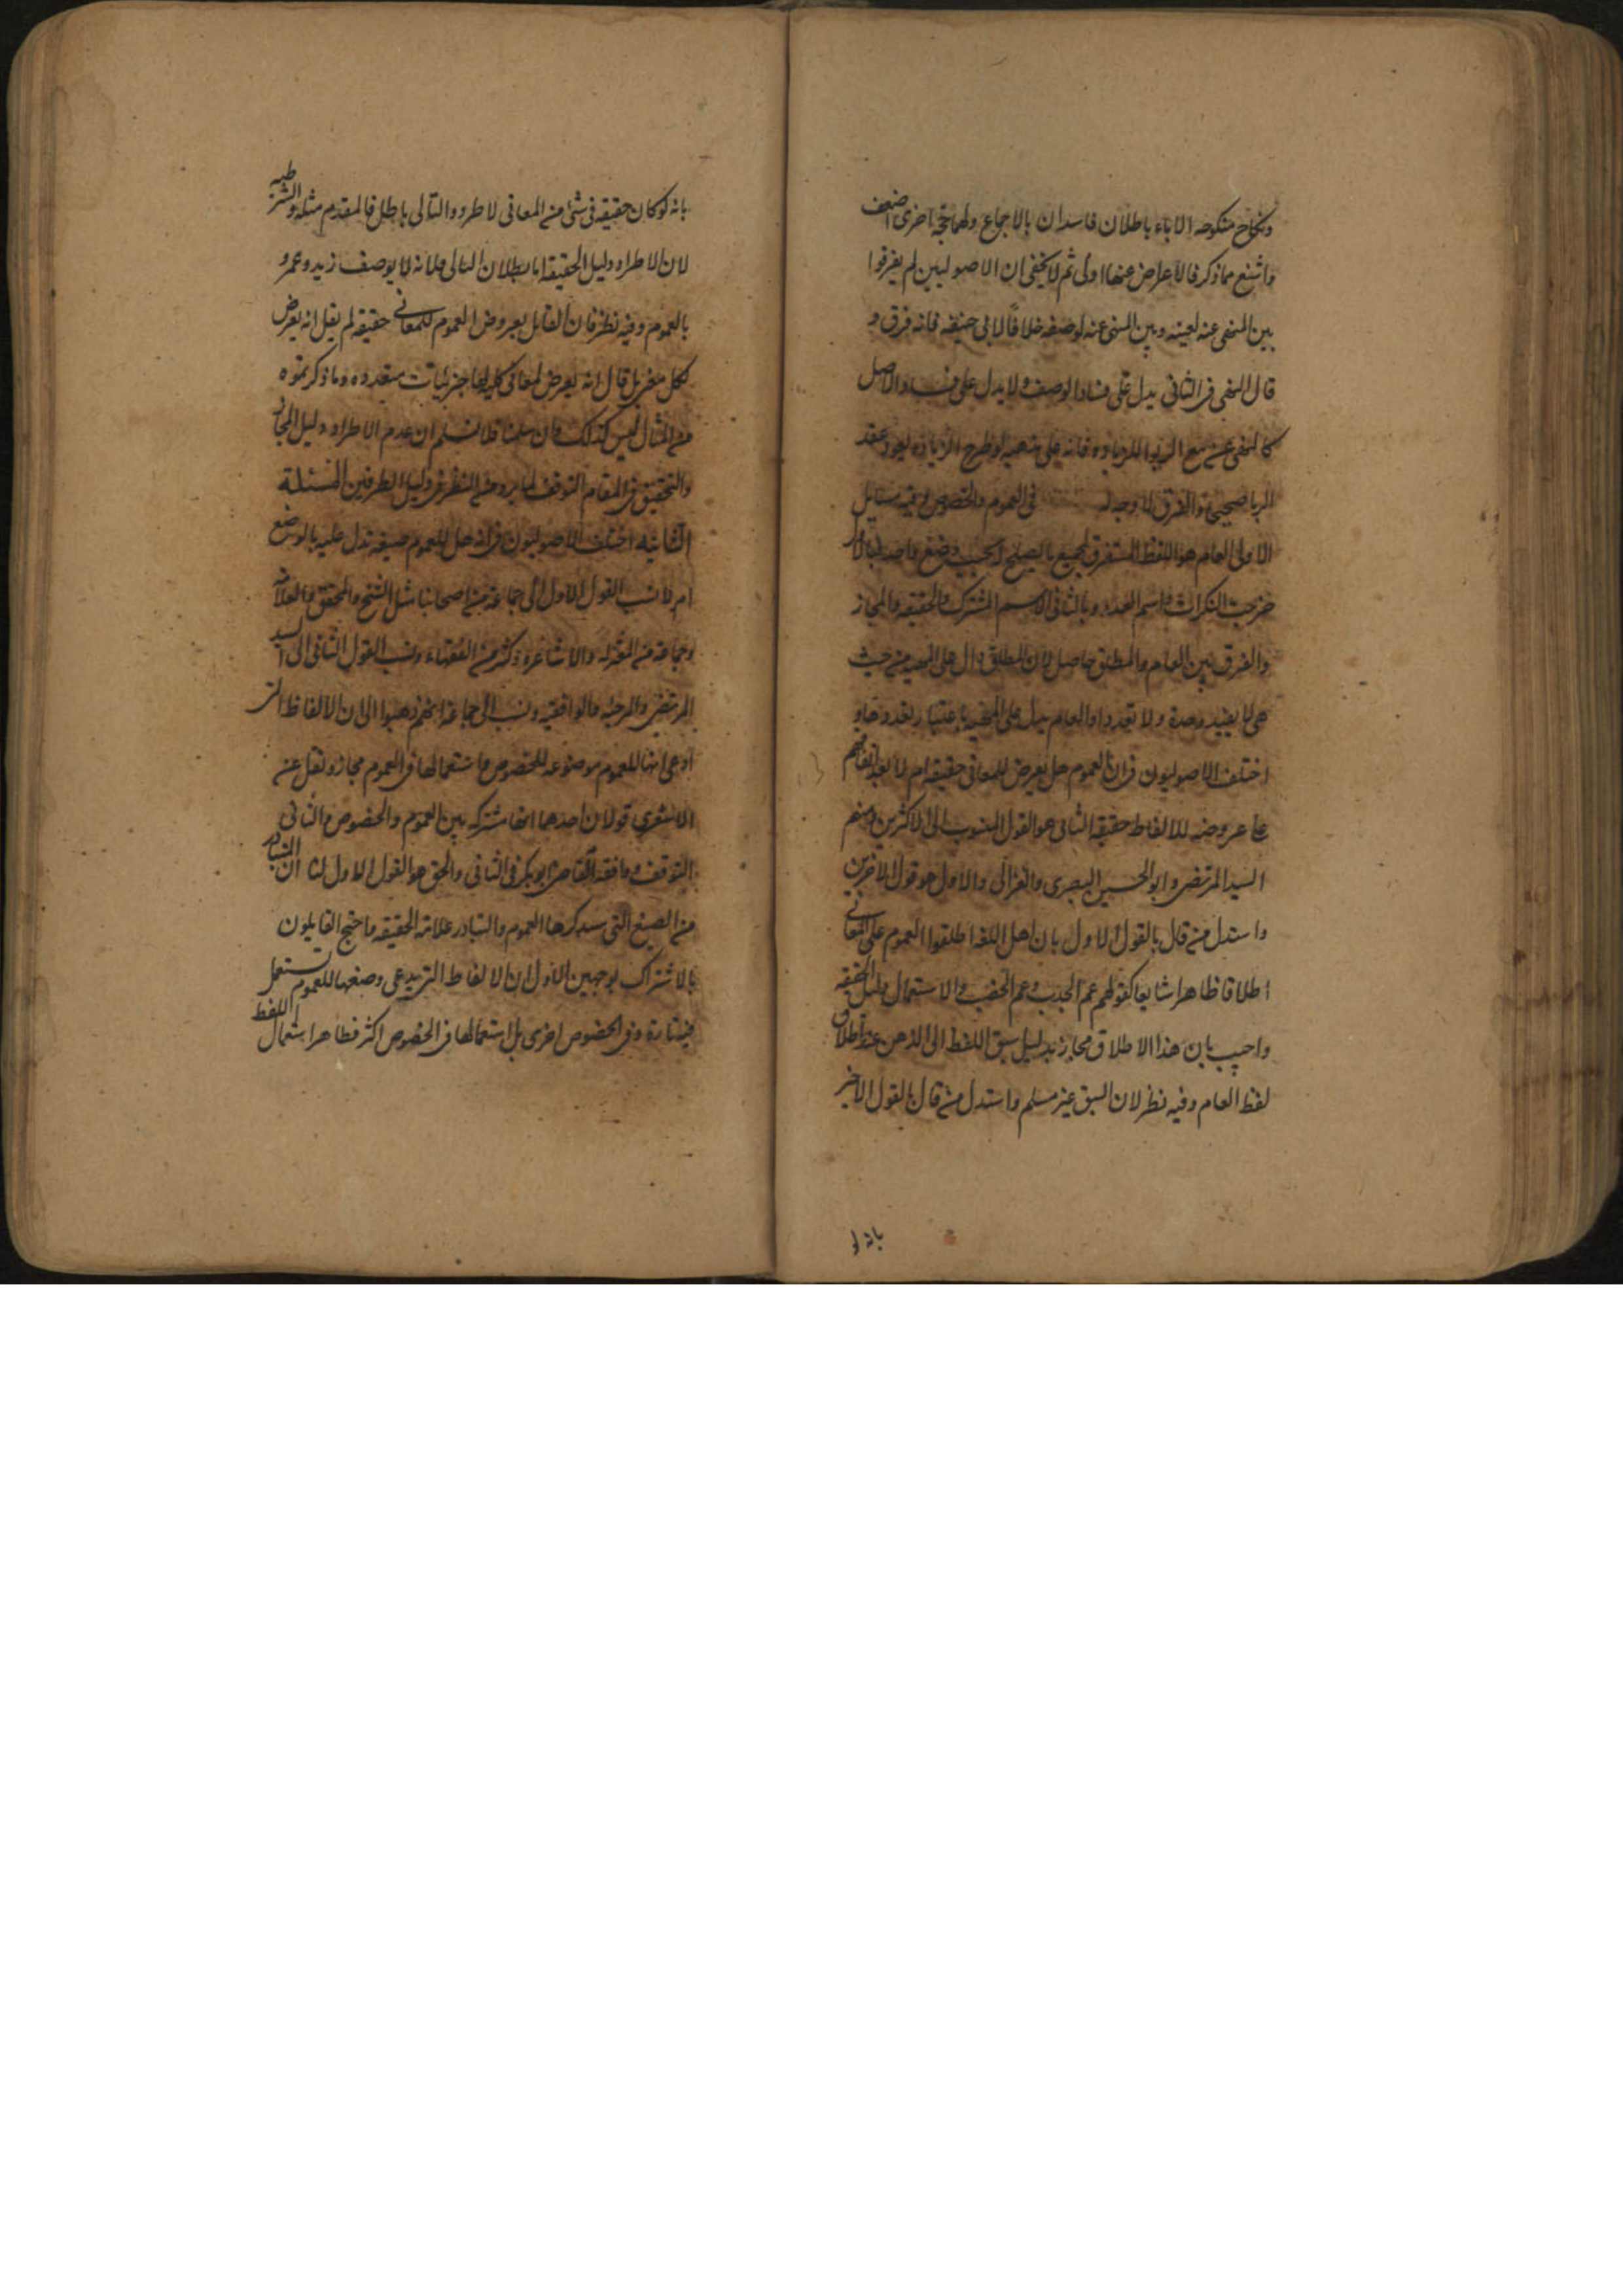 ونكاح منكوحه الاباء باطلان فاسدان بالاجماع ولهما حجة اخرى اضعف
واشنع مما ذكر فالاعراض عنها اولى ثم لا يخفى ان الاصوليين لم يفرقوا
بين المنهى عنه لعينه وبين المنهى عنه لوصفه خلافا لابى حنيفه فانه فرق و
قال النهى فى الثانى يدل على فساد الوصف ولا يدل على فساد الاصل
كالنهى عن بيع الربوا للزياده فانه على مذهبه لو طرح الزياده يعود عقد
الربا صحيحا والفرق لا وجه له فى العموم والخصوص وفيه مسايل
الاولى العام هو اللفظ المستغرق لجميع ما يصلح له بحسب وضع واحد فبالاول
خرجت النكرات واسم العدد وبالثانى الاسم المشترك والحقيقه والمجاز
والفرق بين العام والمطلق حاصل لان المطلق دال على المهيه من حيث
هى لا بقيد وحدة ولا تعدد والعام يدل على المهيه باعتبار تعددها و
اختلف الاصوليون فى ان العموم هل يعرض للمعانى حقيقه ام لا بعد اتفاقهم
على عروضه للالفاظ حقيقه الثانى هو القول المنسوب الى الاكثرين ومنهم
السيد المرتضى وابو الحسين البصرى والغزالى والاول هو قول الاخرين
واستدل من قال بالقول الاول بان اهل اللغه اطلقوا العموم على المعانى
اطلاقا ظاهرا شايعا كقولهم عم الجدب وعم الخصب والاستعمال دليل الحقيقه
واجيب بان هذا الاطلاق مجاز بدليل سبق اللفظ الى الذهن عند اطلاق
لفظ العام وفيه نظر لان السبق غير مسلم واستدل من قال بالقول الاخير
بانه لو
بانه لو كان حقيقه فى شئ من المعانى لاطرد والتالى باطل فالمقدم مثله والشرطيه
لان الاطراد دليل الحقيقه اما بطلان التالى فلانه لا يوصف زيد وعمرو
بالعموم وفيه نظر فان القايل بعروض العموم للمعانى حقيقه لم يقل انه يعرض
لكل معنى بل قال انه يعرض لمعانى كليه لها جزئيات متعدده وما ذكرتموه
من المثال ليس كذلك وان سلمنا فلا نسلم ان عدم الاطراد دليل المجاز
والتحقيق فى المقام التوقف لما يرد من النظر فى دليل الطرفين المسئلة
الثانيه اختلف الاصوليون فى انه هل للعموم صيغه تدل عليه بالوضع
ام لا نسب القول الاول الى جماعة من اصحابنا مثل الشيخ والمحقق والعلامه
وجماعة من المعتزله والاشاعره وكثير من الفقهاء ونسب القول الثانى الى السيد
المرتضى والمرجئه والواقفيه ونسب الى جماعة انهم ذهبوا الى ان الالفاظ التى
ادعى انها للعموم موضوعه للخصوص واستعمالها فى العموم مجاز ونقل عن
الاشعرى قولان احدهما انها مشتركه بين العموم والخصوص والثانى
التوقف ووافقه القاضى ابو بكر فى الثانى والحق هو القول الاول لنا ان المتبادر
من الصيغ التى سنذكرها العموم والتبادر علامة الحقيقه واحتج القايلون
بالاشتراك بوجهين الاول ان الالفاظ التى يدعى وضعها للعموم تستعمل
فيه تارة وفى الخصوص اخرى بل استعمالها فى الخصوص اكثر فظاهر استعمال اللفظ